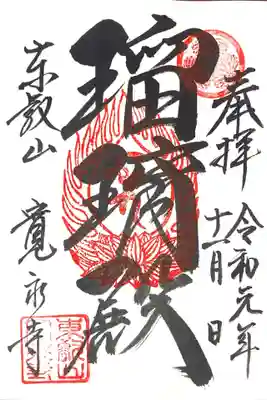 奉拝
令和元年
十一月 日
瑠璃殿
東叡山
寛永寺